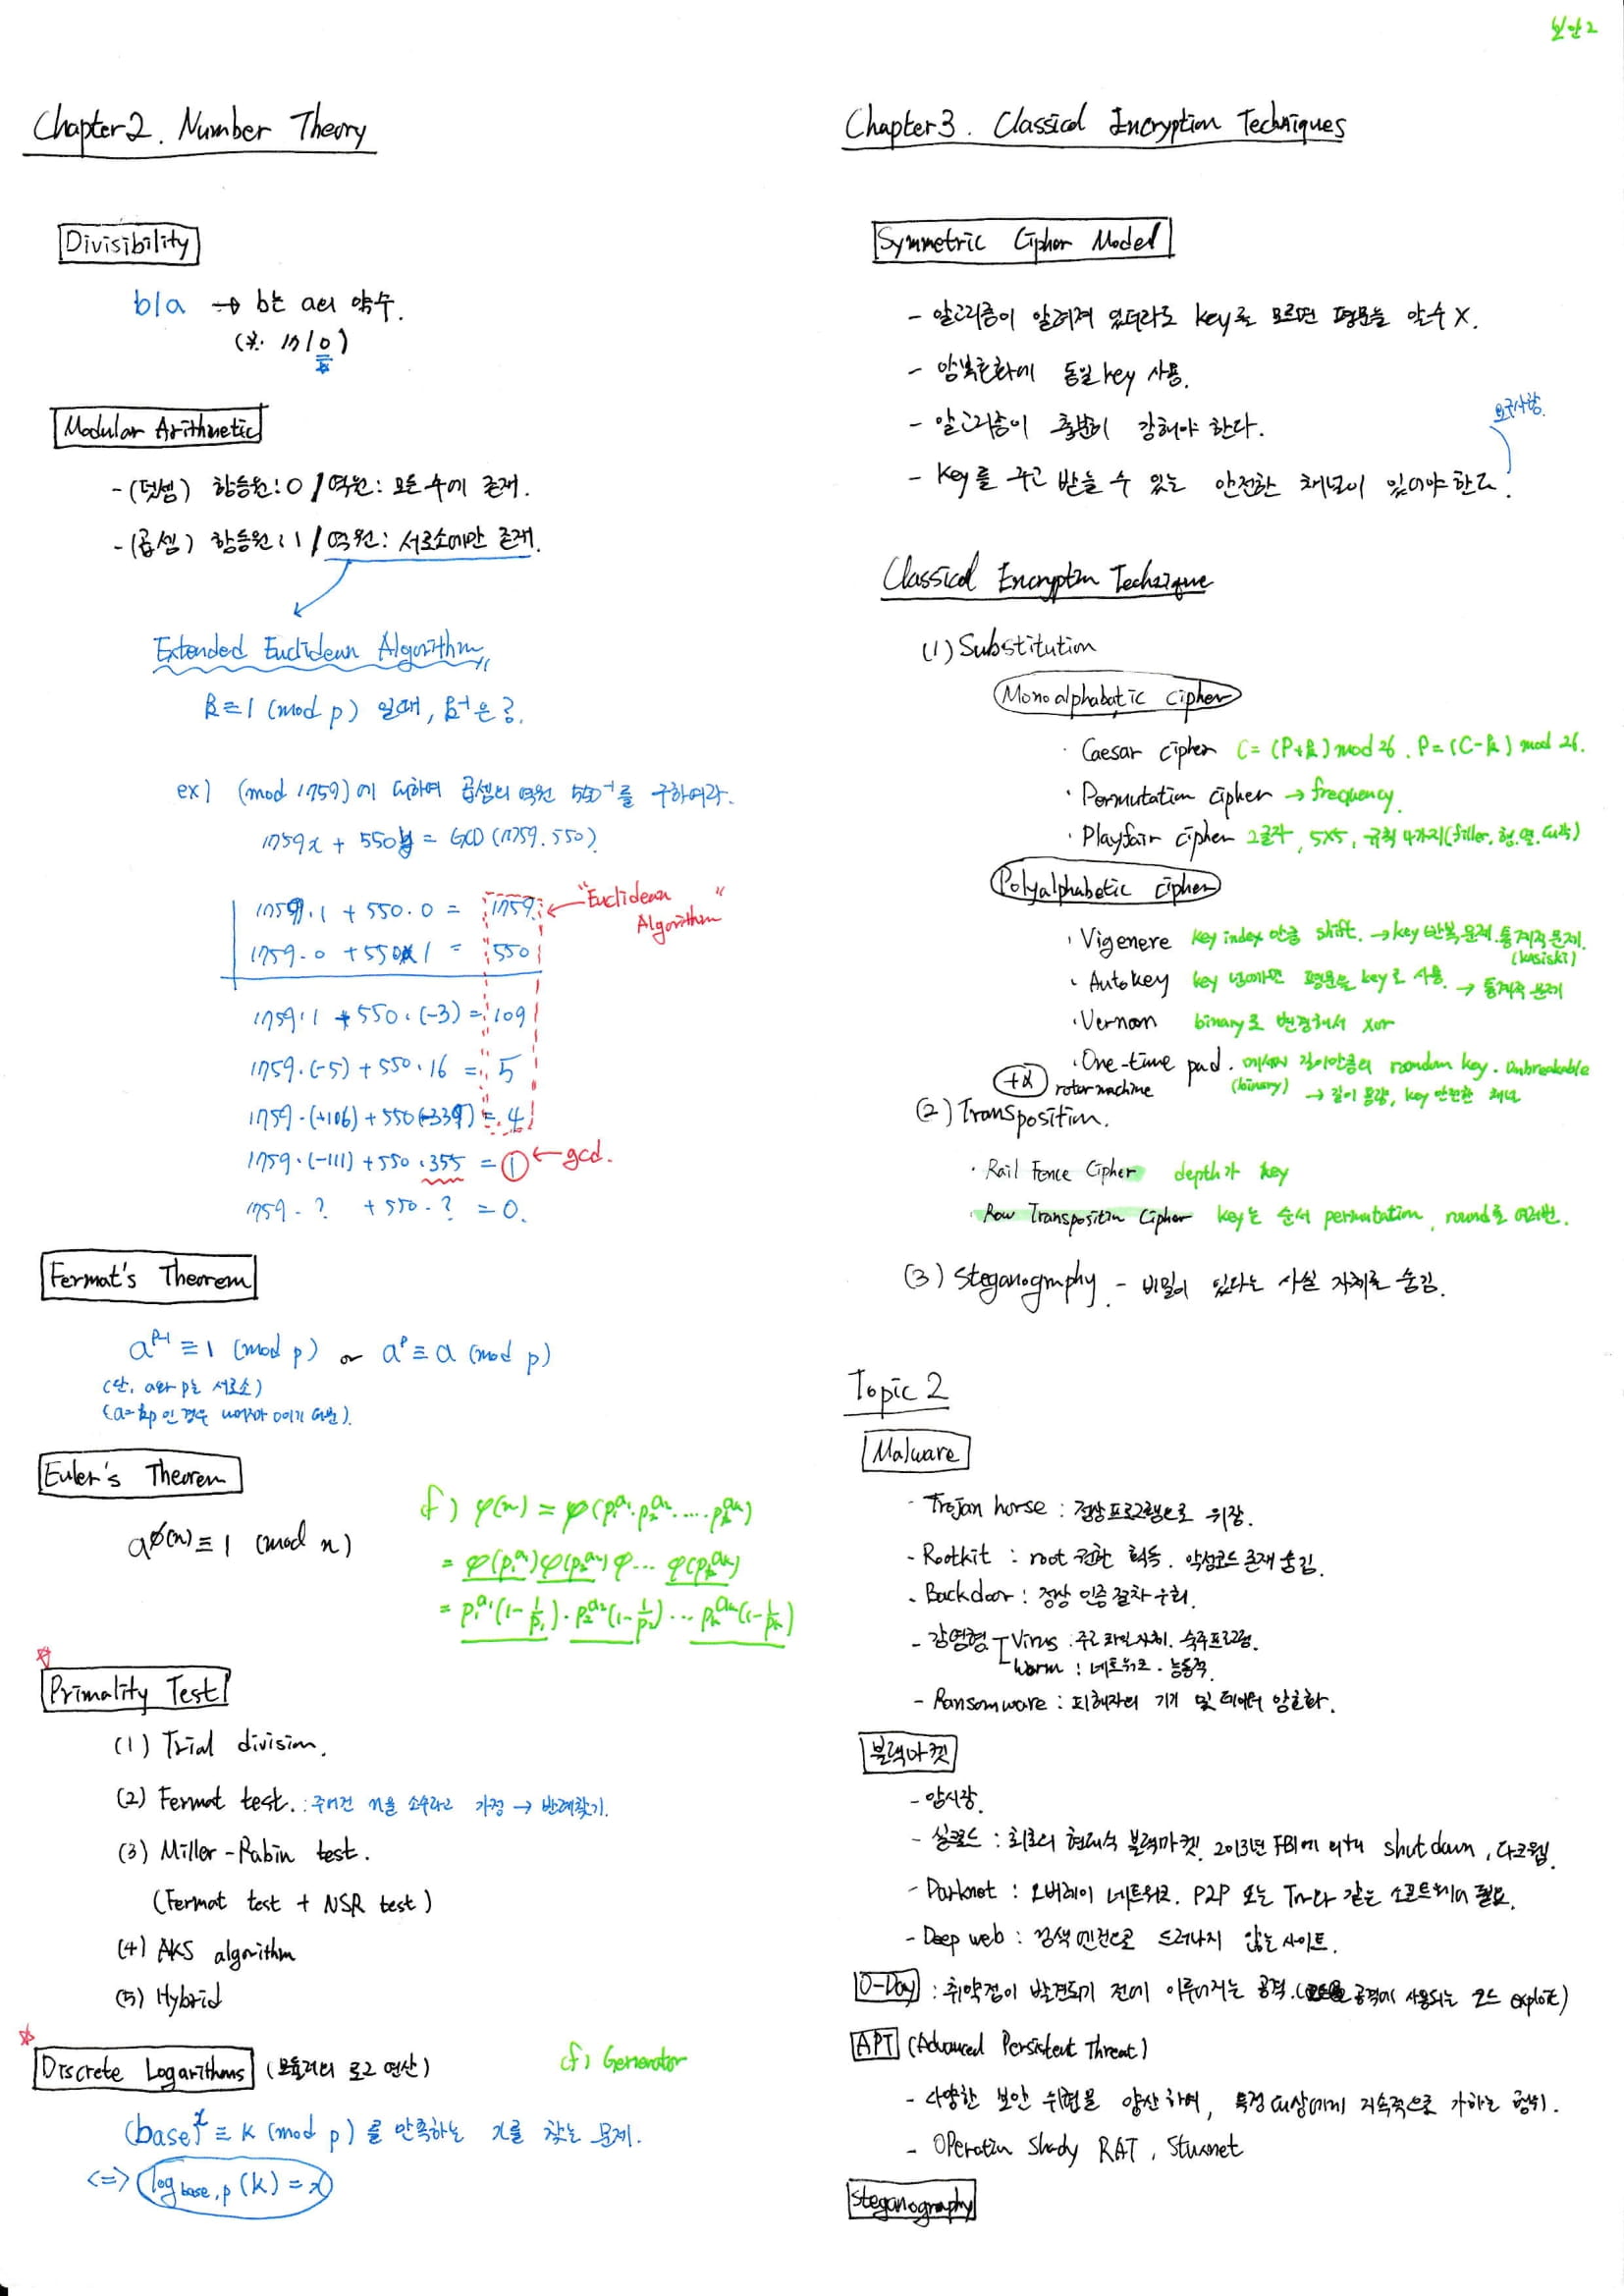 보안2
Chapter2. Number Theory
Divisibility
b|a → b는 a의 약수.
(※. m|0)
Modular Arithmetic
- (덧셈) 항등원:0 / 역원: 모든 수에 존재.
- (곱셈) 항등원:1 / 역원: 서로소에만 존재.
Extended Euclidean Algorithm
k≡1 (mod p) 일때, k⁻¹은?
ex) (mod 1759)에 대하여 곱셈의 역원 550⁻¹를 구하여라.
1759x + 550y = GCD(1759.550)
1759.1 + 550.0 = 1759 ← "Euclidean Algorithm"
1759.0 + 550x1 = 550
1759.1 + 550.(-3) = 109
1759.(-5) + 550.16 = 5
1759.(+106) + 550(-339) = 4
1759.(-111) + 550.355 = ① ← gcd.
1759.? + 550.? = 0.
Fermat's Theorem
a^(p-1) ≡ 1 (mod p) or a^p ≡ a (mod p)
(단, a와 p는 서로소)
(a=kp인 경우 나머지가 0이기 때문).
Euler's Theorem
a^ø(n) ≡ 1 (mod n)
cf) φ(n) = φ(p₁^a₁.p₂^a₂.....pₖ^aₖ)
= φ(p₁^a₁)φ(p₂^a₂)φ... φ(pₖ^aₖ)
= p₁^a₁(1-1/p₁).p₂^a₂(1-1/p₂)...pₖ^aₖ(1-1/pₖ)
☆
Primality Test
(1) Trial division.
(2) Fermat test. : 주어진 n을 소수라고 가정 → 반례찾기.
(3) Miller-Rabin test.
(Fermat test + NSR test)
(4) AKS algorithm
(5) Hybrid
☆
Discrete Logarithms (모듈러의 로그 연산)
cf) Generator
(base)^x ≡ k (mod p)를 만족하는 x를 찾는 문제.
<=> log base,p (k) = x
Chapter3. Classical Encryption Techniques
Symmetric Cipher Model
- 알고리즘이 알려져 있더라도 key를 모르면 평문을 알수 X.
- 암복호화에 동일key 사용.
- 알고리즘이 충분히 강해야 한다.
요구사항.
- Key를 주고 받을 수 있는 안전한 채널이 있어야한다.
Classical Encryptin Technique
(1) Substitution
Monoalphabatic cipher
· Caesar cipher C=(P+k)mod26. P=(C-k) mod 26.
· Permutation cipher → frequency.
· Playfair cipher 2글자, 5x5, 규칙 4가지(filler.행.열.대각)
Polyalphabetic cipher
· Vigenere key index 만큼 shift. → key 반복 문제.통계적문제.
(kasiski)
· Autokey key 넘어가면 평문을 key로 사용. → 통계적 문제
· Vernam binary로 변경해서 xor
· One-time pad. 메세지 길이만큼의 random key. Unbreakable
(binary) → 길이 용량, key 안전한 채널
+α rotor machine
(2) Transposition.
· Rail Fence Cipher depth가 key
· Row Transpositin Cipher key는 순서 permutation, round로 여러번.
(3) Steganography. - 비밀이 있다는 사실 자체를 숨김.
Topic 2
Malware
- Trojan horse : 정상프로그램으로 위장.
- Rootkit : root 권한 획득. 악성코드 존재 숨김.
- Backdoor : 정상 인증 절차 우회.
- 감염형 Virus : 주로 파일 자체. 숙주프로그램.
Worm : 네트워크. 능동적.
- Ransomware : 피해자의 기기 및 데이터 암호화.
블랙마켓
- 암시장.
- 실크로드 : 최초의 현대식 블랙마켓. 2013년 FBI에 의해 shut down, 다크웹.
- Darknet : 오버레이 네트워크. P2P 또는 Tor과 같은 소프트웨어 필요.
- Deep web : 검색엔진으로 드러나지 않는 사이트.
0-Day : 취약점이 발견되기 전에 이루어지는 공격.( 공격에 사용되는 코드 exploit)
APT (Advanced Persistent Threat)
- 다양한 보안 위협을 양산하여, 특정 대상에게 지속적으로 가하는 행위.
- Operatin Shady RAT, Stuxnet
Steganography